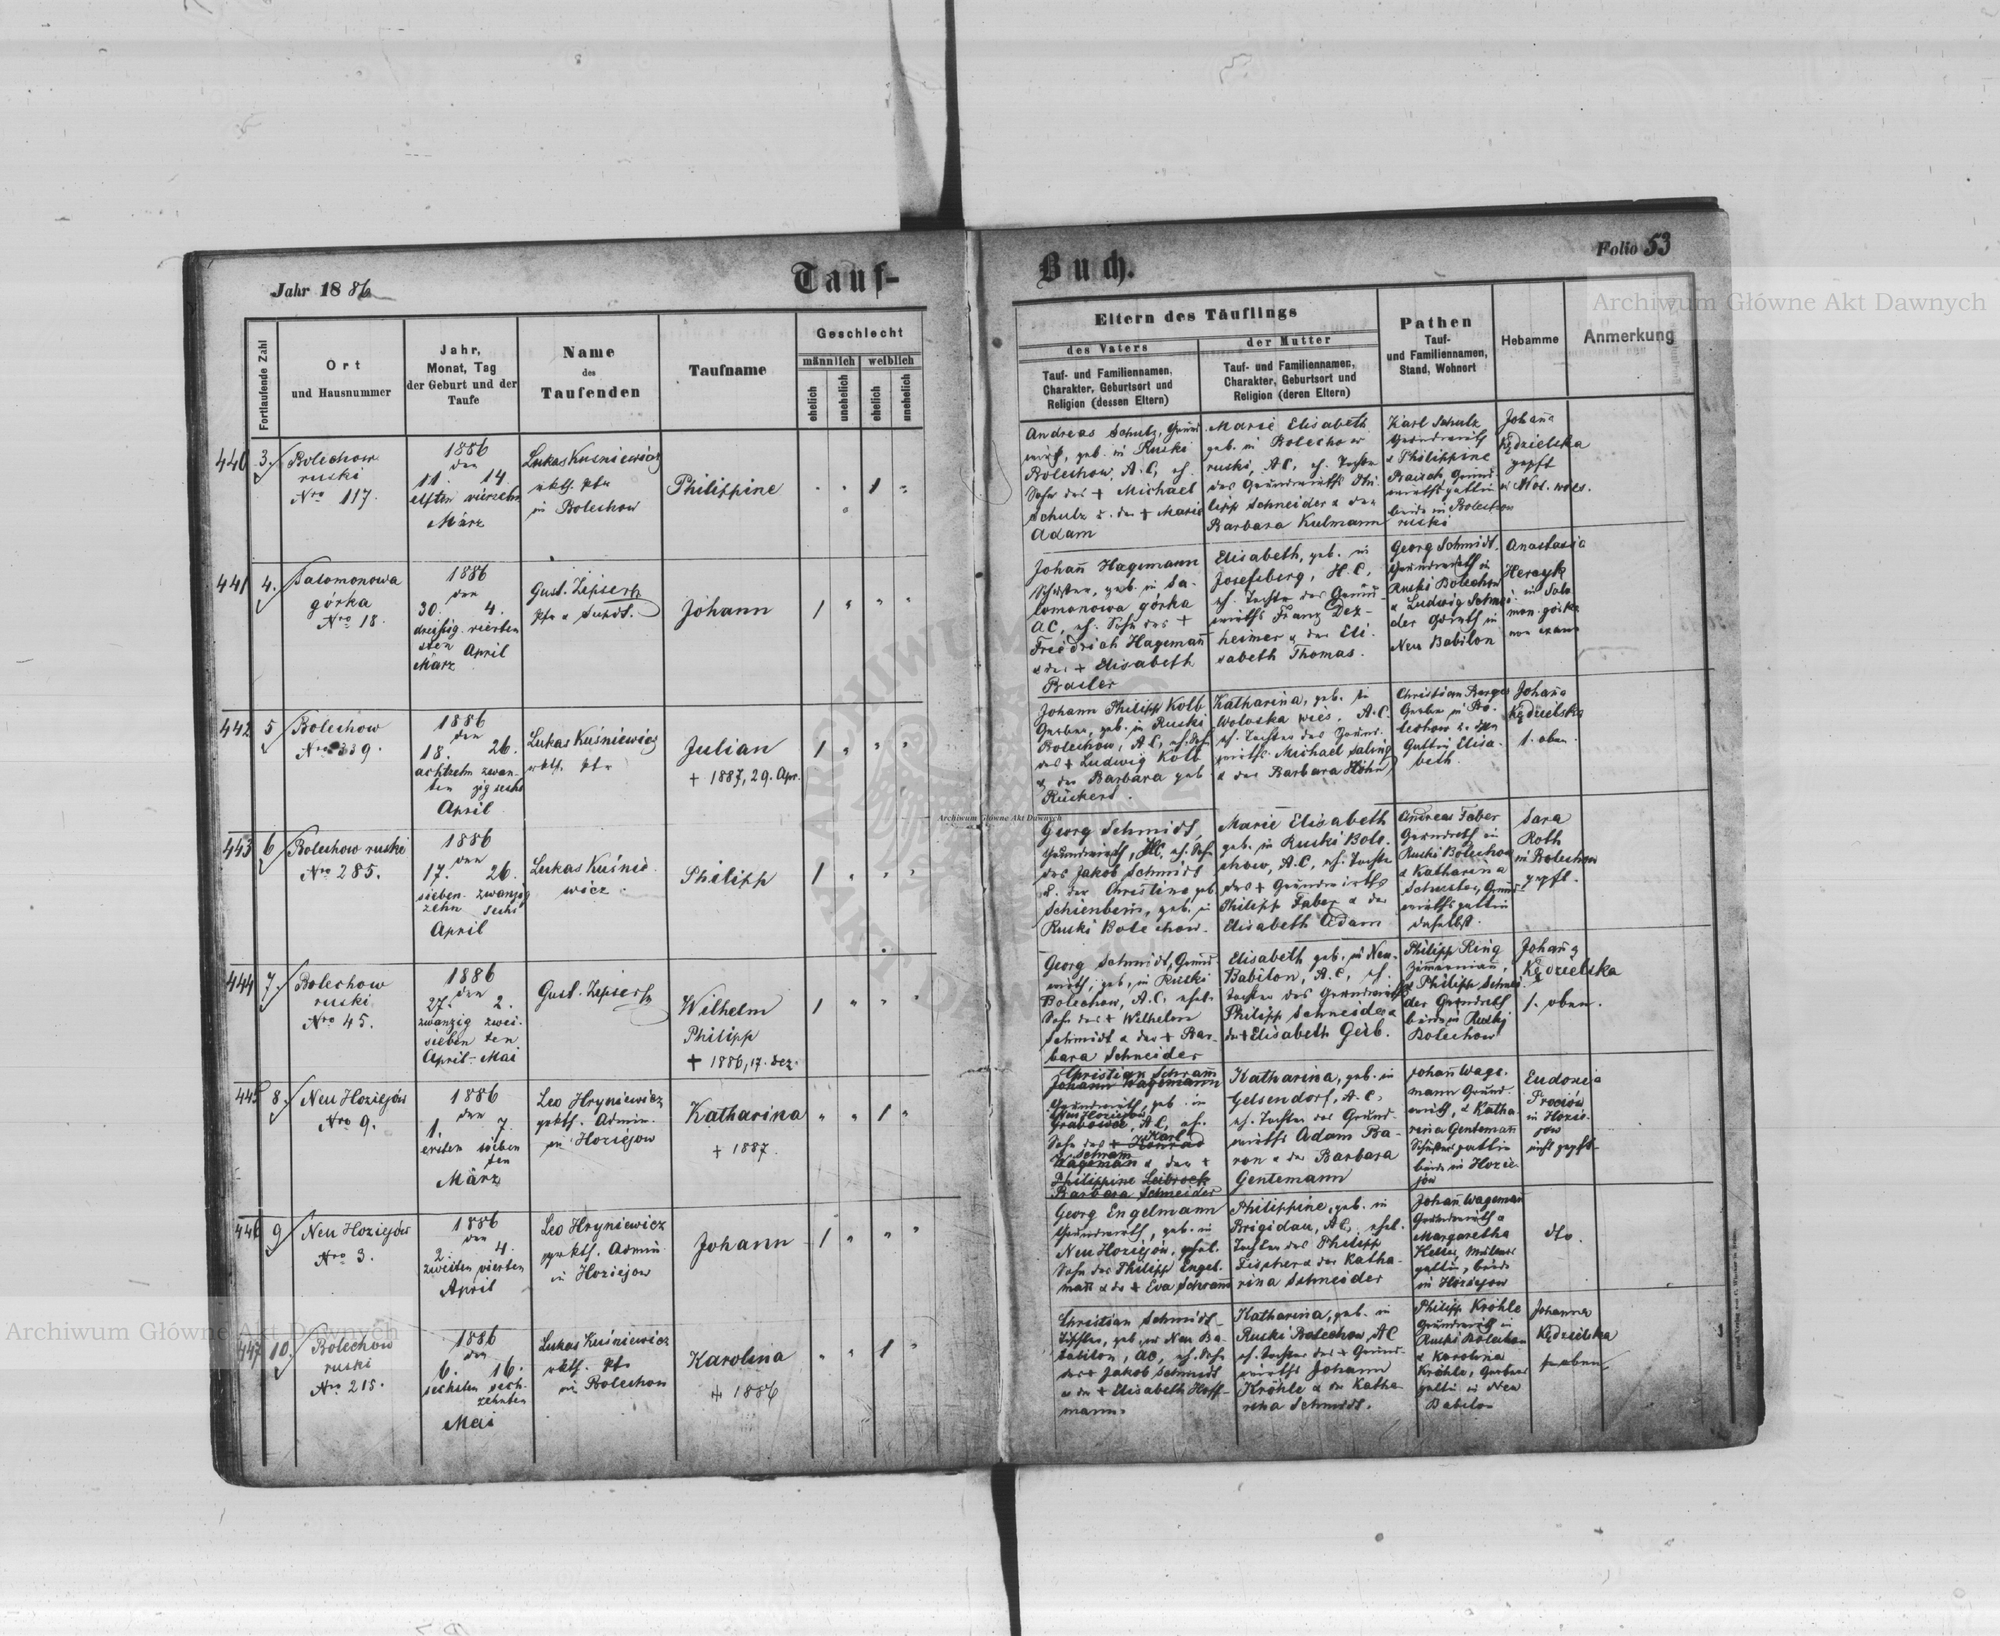 Jahr 1886
Tauf-
Buch.
Folio 53
Archiwum Główne Akt Dawnych
Fortlaufende Zahl
Ort
und Hausnummer
Jahr,
Monat, Tag
der Geburt und der
Taufe
Name
des
Taufenden
Taufname
Geschlecht
männlich weiblich
ehelich
unehelich
ehelich
unehelich
Eltern des Täuflings
des Vaters
Tauf- und Familiennamen,
Charakter, Geburtsort und
Religion (dessen Eltern)
der Mutter
Tauf- und Familiennamen,
Charakter, Geburtsort und
Religion (deren Eltern)
Pathen
Tauf-
und Familiennamen,
Stand, Wohnort
Hebamme
Anmerkung
440 3.
Bolechow
ruski
Nro 117.
1886
den
11. 14.
elften vierzehn
März
Lukas Kuśniewicz
rkth. Pfr
in Bolechow
Philippine
1
Andreas Schulz, Grund
wirth, geb. in Ruski
Bolechow, A.C., eh.
Sohn des + Michael
Schulz u. der + Marie
Adam
Marie Elisabeth
geb. in Bolechow
ruski, AC, eh. Tochter
des Grundwirths Phi-
lipp Schneider & der
Barbara Kulmann
Karl Schulz
Grundwirth
& Philippine
Grund-
wirthsgattin
beide in Bolechow
ruski
Johana
Kędzielska
gepft
441 4.
Salomonowa
górka
Nro 18.
1886
den
30. 4.
dreißig- vierten
sten April
März
Gust. Zipser
Pfr &
Johann
1
Johann Hagemann
geb. in Sa-
lomonowa górka
AC, eh. Sohn des +
Friedrich Hagemann
& der + Elisabeth
Basler
Elisabeth, geb. in
Josefsberg, H.C.,
eh. Tochter des Grund-
wirths Franz Dez-
heimer & der Eli-
sabeth Thomas.
Georg Schmidt,
Grundwirth in
Ruski Bolechow
& Ludwig Schnei-
der Gdwirth in
Neu Babilon
Anastasia
Hercyk
in Salo
mon. górka
442 5
Bolechow
Nro 339.
1886
den
18. 26.
achtzehn zwan-
ten zig sechs
April
Lukas Kuśniewicz
rkth. Pfr
Julian
+ 1887, 29. Apr.
1
Johann Philipp Kolb
Gerber, geb. in Ruski
Bolechow, AC, eh. Sohn
des + Ludwig Kolb
& der Barbara geb.
Rückert.
Katharina, geb. in
Woloska wieś, A.C.
eh. Tochter des Grund-
wirths Michael Saling
& der Barbara Höhn
Christian Berger
Gerber in Bo-
lechow u. dessen
Gattin Elisa-
beth.
Johana
Kędzielska
s. oben.
443 6
Bolechow ruski
Nro 285.
1886
den
17. 26.
sieben- zwanzig
zehn sechs
April
Lukas Kuśnie-
wicz.
Philipp
1
Georg Schmidt,
Grundwirth, HC, eh. Sohn
des Jakob Schmidt
u. der Christine geb.
Schienbein, geb. in
Ruski Bolechow.
Marie Elisabeth
geb. in Ruski Bole-
chow, A.C., eh. Tochter
des + Grundwirths
Philipp Faber & der
Elisabeth Adam
Andreas Faber
Grundwrth in
Ruski Bolechow
& Katharina
Schuster, Grund-
wirthsgattin
daselbst.
Sara
Roth
in Bolechow
gepft.
444 7.
Bolechow
ruski
Nro 45.
1886
den
27. 2.
zwanzig zwei-
sieben ten
April- Mai
Gust. Zipser
Wilhelm
Philipp
+ 1886, 17. Dez.
1
Georg Schmidt, Grund
wirth, geb. in Ruski
Bolechow, A.C., ehel.
Sohn des + Wilhelm
Schmidt & der + Bar-
bara Schneider
Elisabeth geb. in Neu-
Babilon, A.C., eh.
Tochter des Grundwirths
Philipp Schneider &
der + Elisabeth Gerb.
Philipp Ring
Zimmermann,
& Philipp Schnei-
der Grundwrth
beide in Ruski
Bolechow
Johana
Kędzielska
s. oben.
445 8.
Neu Hoziejów
Nro 9.
1886
den
1. 7.
ersten sieben
ten
März
Leo Hryniewicz
grkth. Admin.
in Hoziejow
Katharina
+ 1887.
1
Christian Schram
Johann Wagemann
Grundwirth, geb. in
Neu Hoziejów
Grabowce, AC, eh.
Sohn des + Konrad
Karl
Schram
Wageman & der +
Philippine Leibrock
Barbara Schneider
Katharina, geb. in
Gelsendorf, A.C.,
eh. Tochter des Grund-
wirths Adam Ba-
ron & der Barbara
Gentemann
Johann Wage-
mann Grund-
wirth, & Katha-
rina Gentemann
gattin
beide in Hozie-
jow
Eudoxia
in Hozie-
jow
nicht gepft.
446 9
Neu Hoziejów
Nro 3.
1886
den
2. 4.
zweiten vierten
April
Leo Hryniewicz
grkth. Admin.
in Hoziejow
Johann
1
Georg Engelmann
Grundwirth, geb. in
Neu Hoziejów, ehel.
Sohn des Philipp Engel-
mann & der + Eva Schramm
Philippine, geb. in
Brigidau, AC, ehel.
Tochter des Philipp
Fischer & der Katha-
rina Schneider
Johann Wageman
Grundwirth &
Margaretha
gattin, beide
in Hoziejow
dto.
447 10.
Bolechow
ruski
Nro 215.
1886
den
6. 16.
sechsten sech-
zehnten
Mai
Lukas Kuśniewicz
rkth. Pfr
in Bolechow
Karolina
+ 1886
1
Christian Schmidt
Tischler, geb. in Neu Ba-
bilon, AC, eh. Sohn
des + Jakob Schmidt
u. der + Elisabeth Hoff-
mann.
Katharina, geb. in
Ruski Bolechow, AC
eh. Tochter des + Grund-
wirths Johann
Kröhle & der Katha-
rina Schmidt.
Philipp Kröhle
Grundwirth in
Ruski Bolechow
& Karolina
Kröhle, Gerbers
gattin in Neu
Babilon
Johanna
Kędzielska
s. oben.
Archiwum Główne Akt Dawnych
Archiwum Główne Akt Dawnych